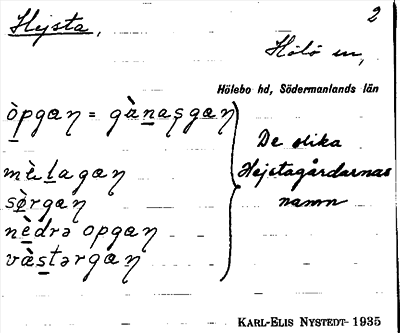 Hejsta,
2
Hölö sn,
Hölebo hd, Södermanlands län
ò̱pgaŋ = gà̱naṣga̱ŋ
mèḻagaŋ
sø̱̀rgaŋ
nè̱drə opgaŋ
væ̀s̱tərgaŋ
De olika
Hejstagårdarnas
namn
KARL-ELIS NYSTEDT- 1935